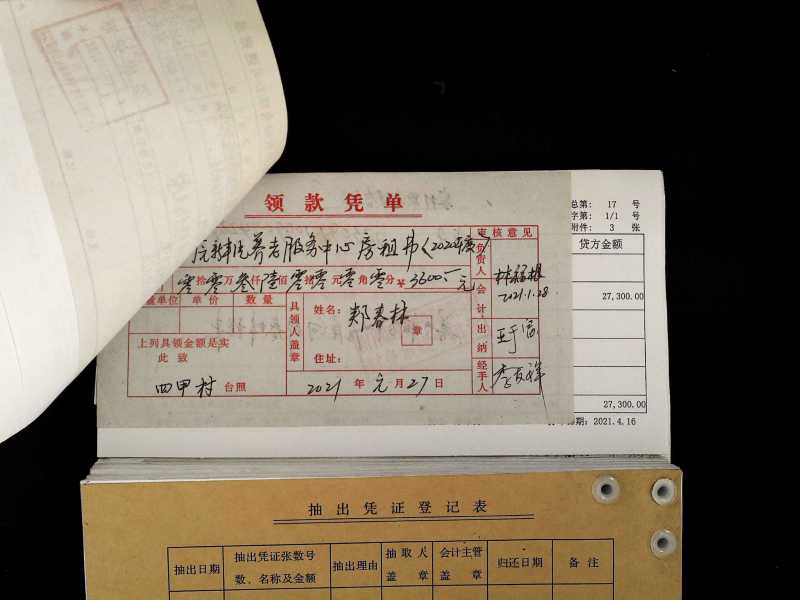 领款凭单
养老服务中心房租费(2020年度)
零拾零万叁仟陆佰零拾零元零角零分¥3600.一元
审核意见
负责人
2021.1.28
会计
出纳
经手人
单位 单价 数量
具领人盖章
姓名: 郑春林
章
住址:
上列具领金额是实
此致
四甲村 台照
2021 年 元 月 27 日
总第: 17 号
字第: 1/1 号
附件: 3 张
贷方金额
27,300.00
27,300.00
期: 2021.4.16
抽出凭证登记表
抽出日期
抽出凭证张数号数、名称及金额
抽出理由
抽取人盖章
会计主管盖章
归还日期
备注